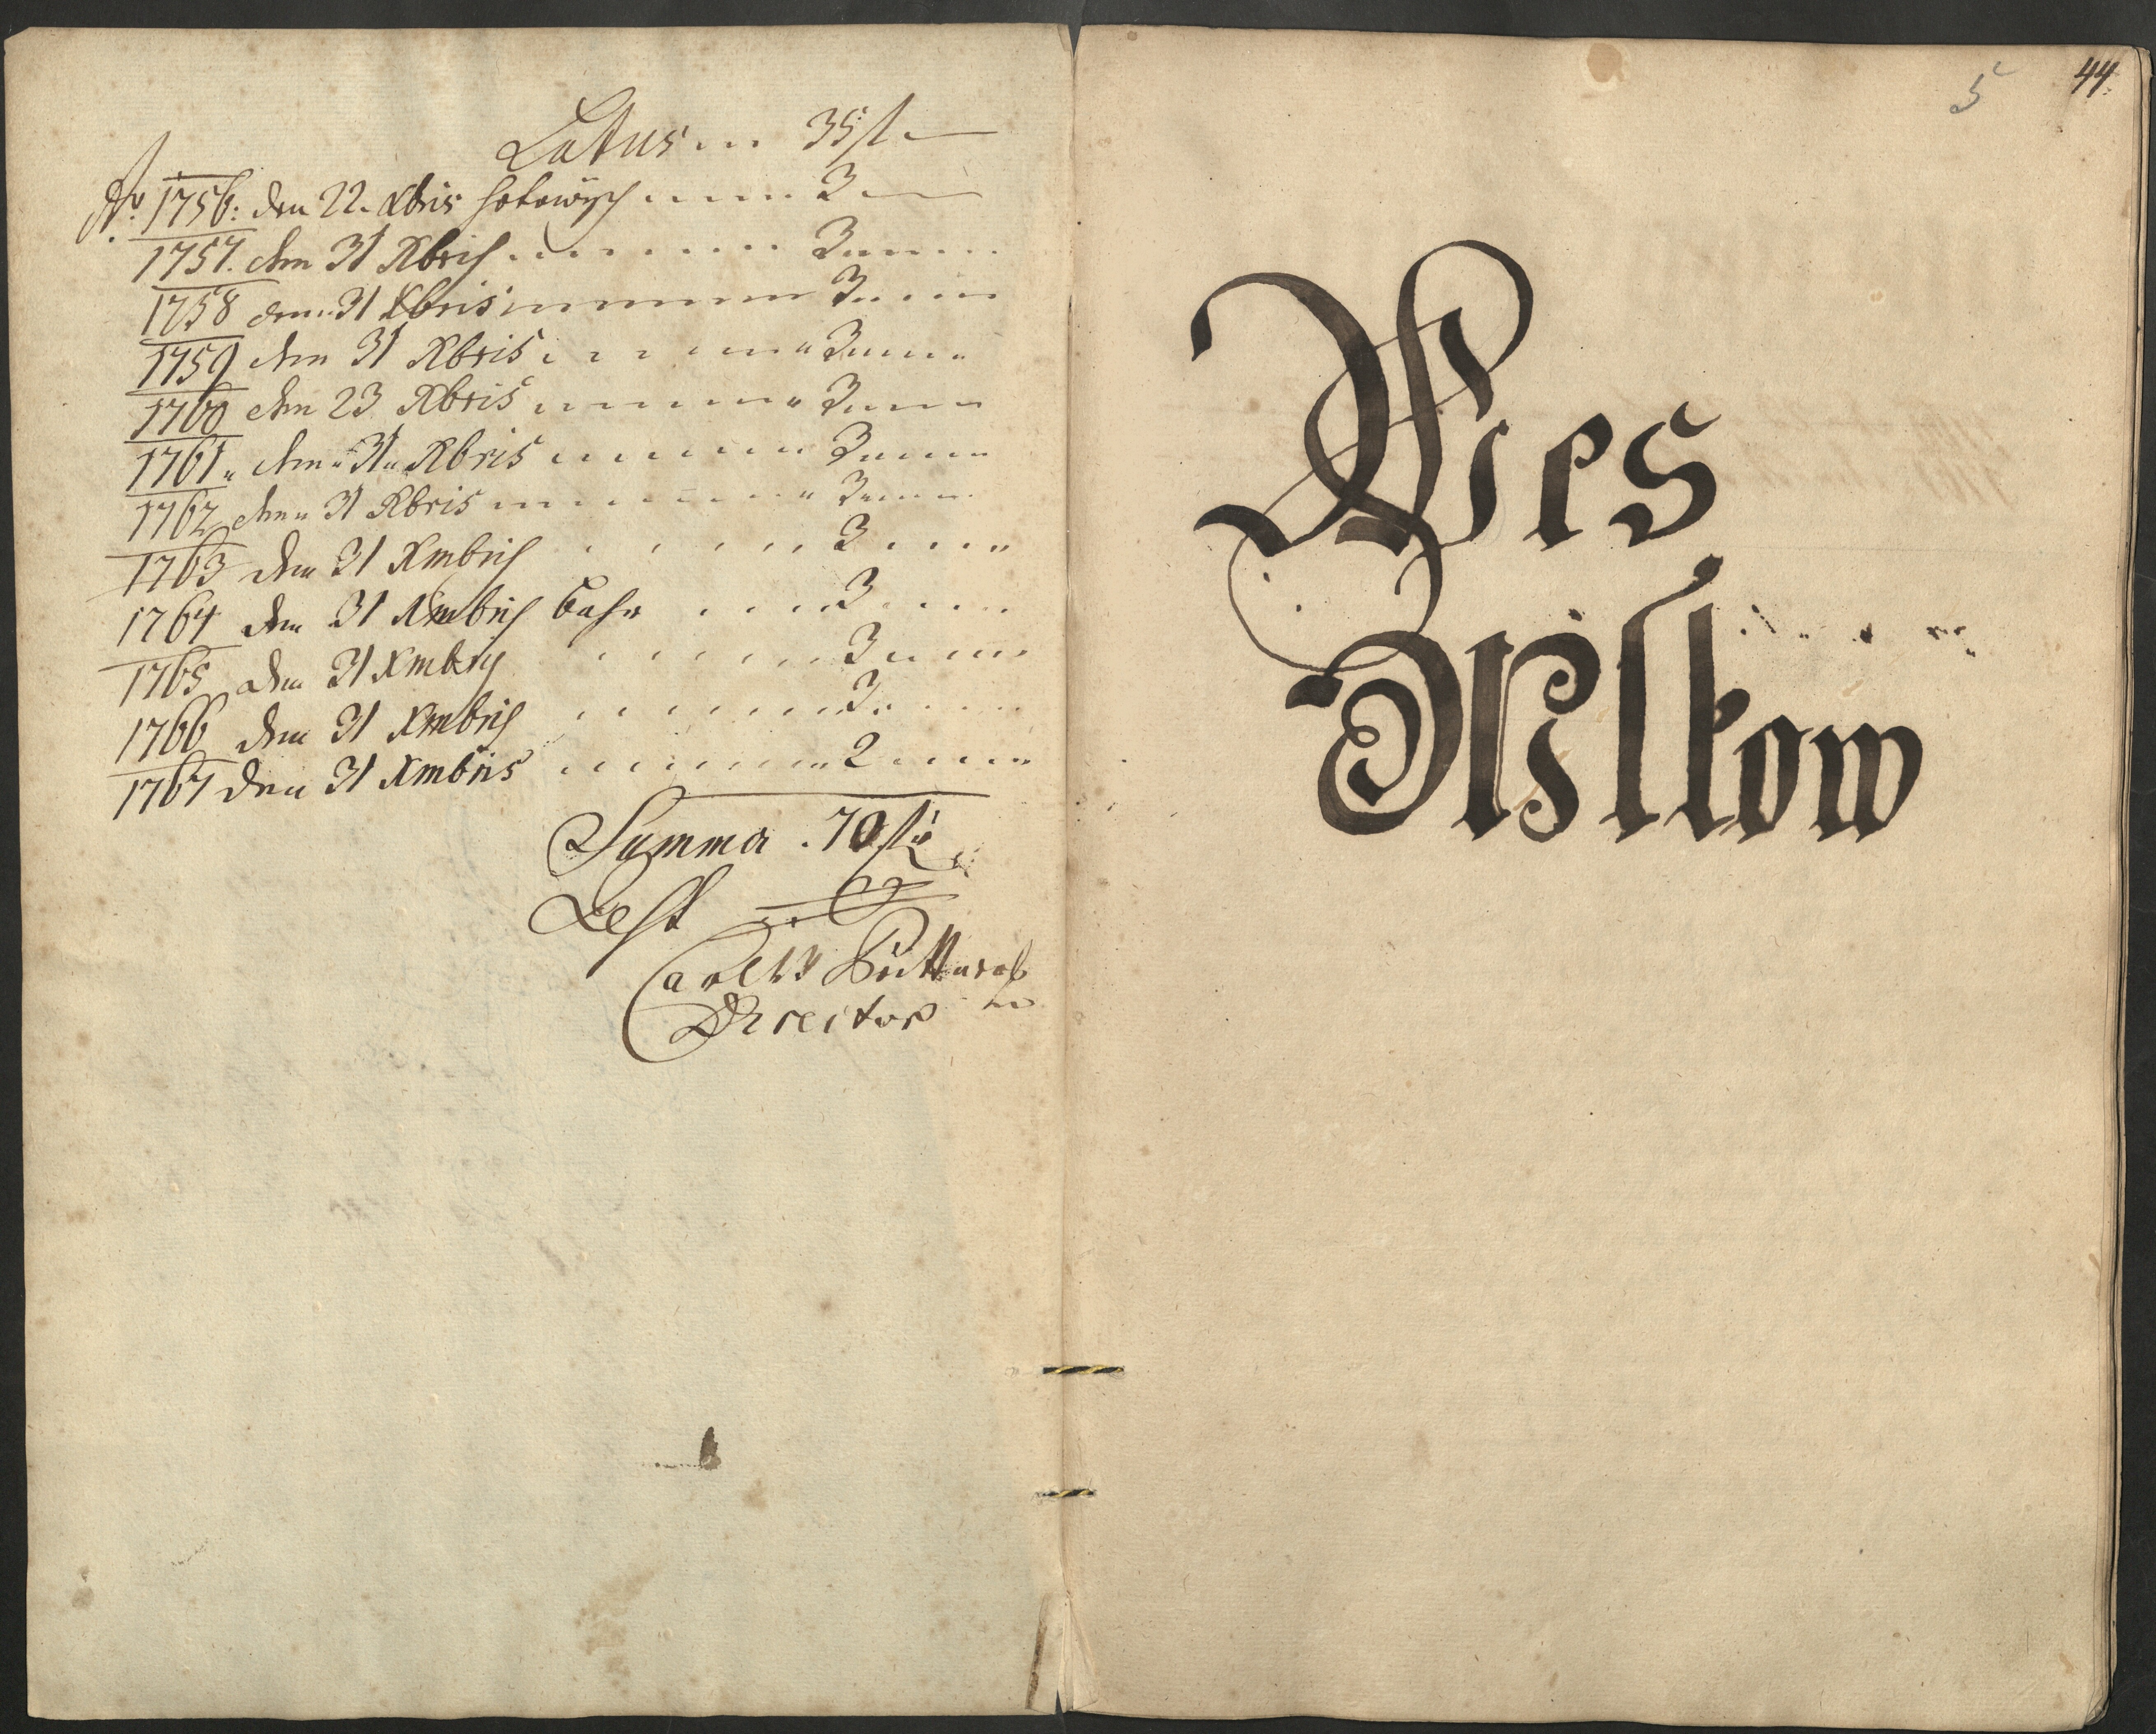 Latus 35 f
Ao 1756: den 22. Xbris hotowych 3
1757. den 31 Xbris 3
1758 den 31 Xbris 3
1759 den 31 Xbris 3
1760 den 23 Xbris 3
1761 den 31 Xbris 3
1762 den 31 Xbris 3
1763 den 31 Xmbris 3
1764 den 31 Xmbris bahr 3
1765 den 31 Xmbris 3
1766 den 31 Xmbris 3
1767 den 31 Xmbris 2
Summa 70 f
Rest
Carl
Director
5 44
Wes